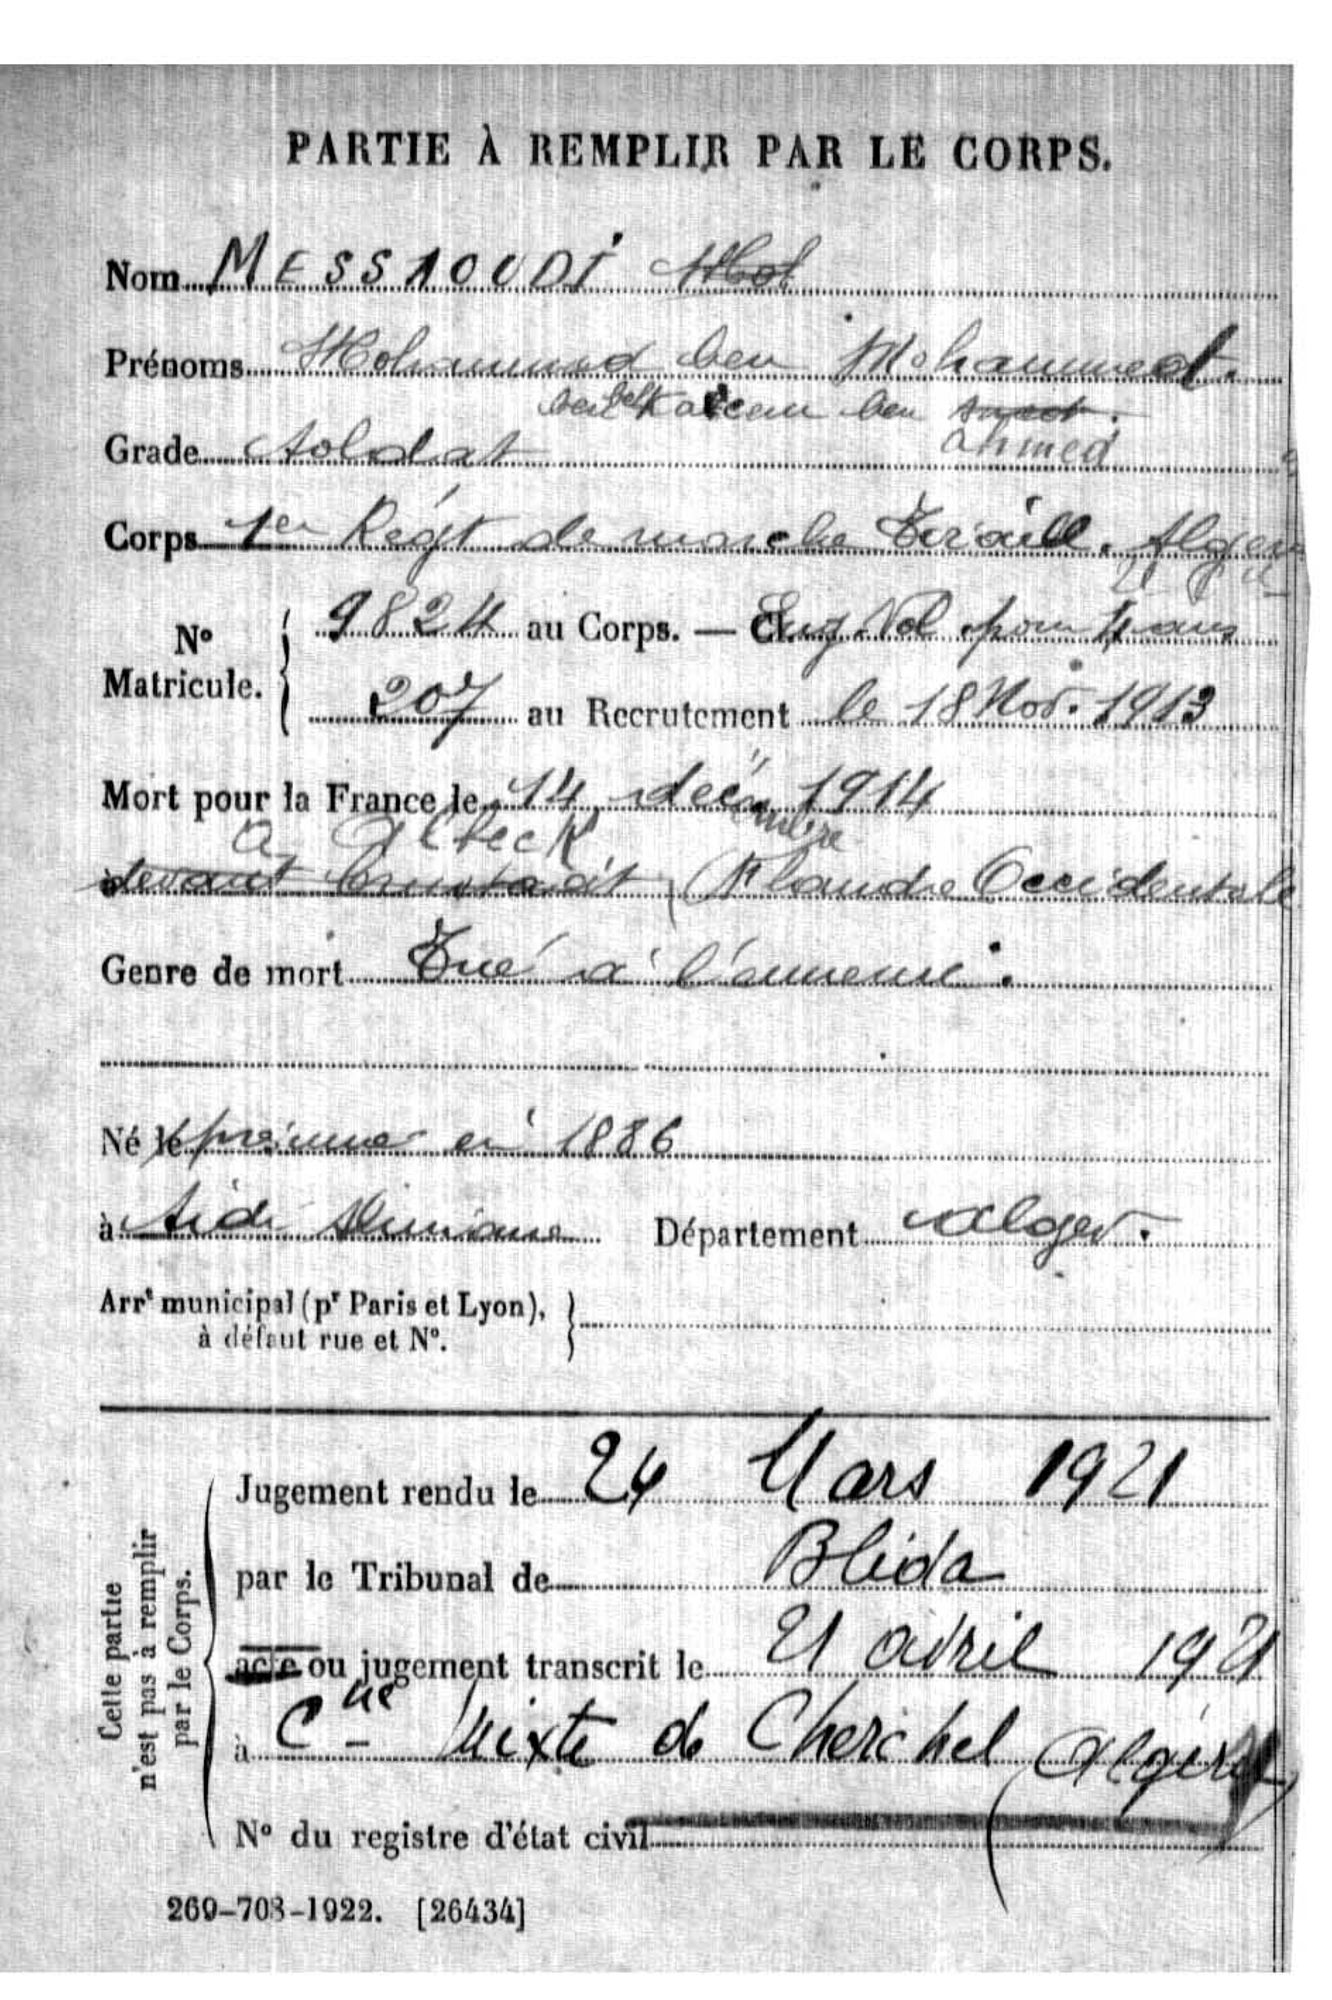 PARTIE À REMPLIR PAR LE CORPS.
Nom MESSAOUDI
Prénoms Mohammed ben Mohammed.
ben belKacem ben
ahmed
Grade Soldat
Corps 1er Régt de marche Tiraill. Alger
N° Matricule. 9824 au Corps. — Cl. Eng. Vol. pour 4 ans
207 au Recrutement le 18 Nov. 1913
Mort pour la France le 14 décembre 1914
a
devant (Flandre Occidentale
Genre de mort Tué à l'ennemi.
Né le présumé en 1886
à Sidi Slimane Département Alger.
Arrt municipal (pr Paris et Lyon),
à défaut rue et N°.
Cette partie
n'est pas à remplir
par le Corps.
Jugement rendu le 24 Mars 1921
par le Tribunal de Blida
acte ou jugement transcrit le 21 avril 1921
à Cne Mixte de Cherchel (Algérie)
N° du registre d'état civil
269-708-1922. [26434]